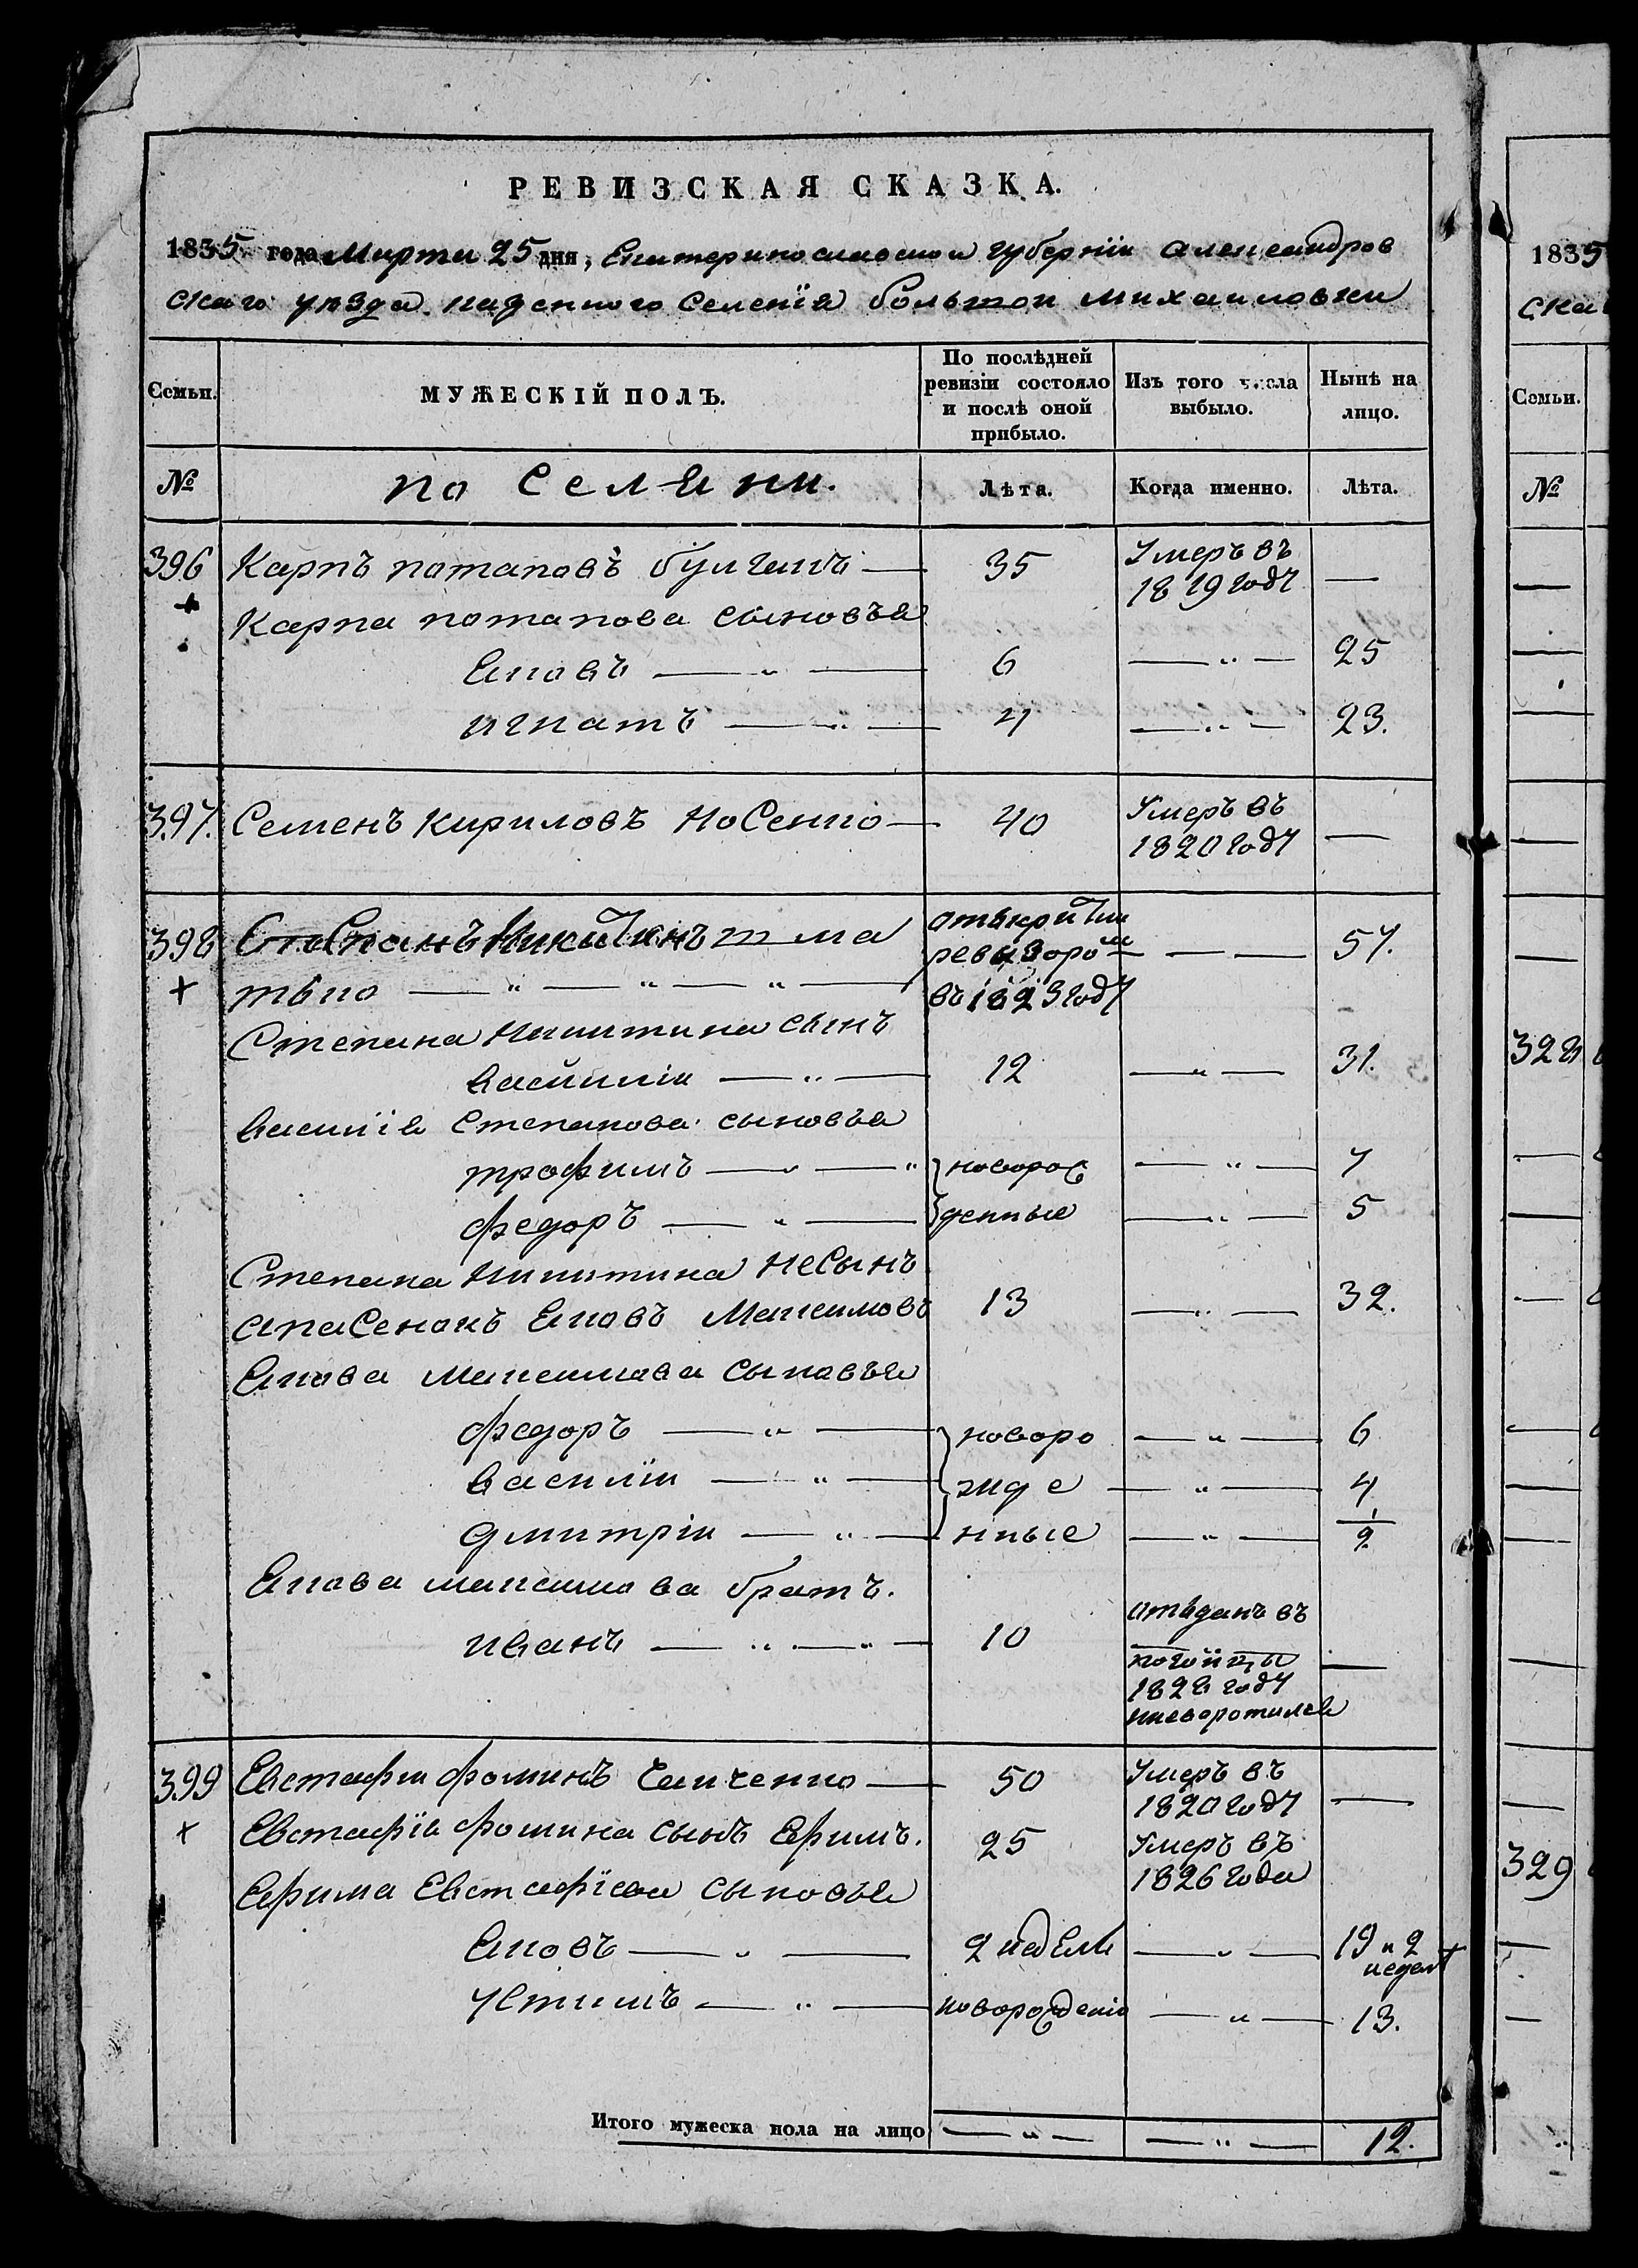 РЕВИЗСКАЯ СКАЗКА.
1835 года Марта 25 дня, Екатеринославской губерніи Александров
скаго уезда казенного Селенія большой михаиловки
Семьи.
МУЖЕСКІЙ ПОЛЪ.
По послѣдней ревизіи состояло и послѣ оной прибыло.
Изъ того числа выбыло.
Нынѣ на лицо.
№
поселяни.
Лѣта.
Когда именно.
Лѣта.
396 Карпъ потаповъ 35 Умеръ въ 1819 году —
Карпа потапова сыновья
Яковъ 6 25
игнатъ 4 23.
397. Семенъ кириловъ носенко 40 Умеръ въ 1820 году —
398 Степанъ Никитинъ отькритии ревизоромъ въ 1823 году 57.
Степана никитина сынъ
василии 12 31.
василія Степанова сыновья
трофимъ 7
федоръ 5
новорожденные
Степана никитина несынъ
апасенокъ Яковъ Максимовъ 13 32.
Якова максимова сыновья
федоръ 6
василіи 4
дмитріи 1/2
новорожденные
Якова максимова братъ.
иванъ 10 отьданъ въ 1828 году неворотилса —
399 Евстафіи фоминъ 50 Умеръ въ 1820 году —
Евстафія фомина сынъ Ефимъ. 25 Умеръ въ 1826 года
Ефима Евстафіева сыновья
Яковъ 2 недели 19 и 2 недели
устимъ новорожденіо 13.
Итого мужеска пола на лицо 12.
1835
ска
Семьи.
№
328
329